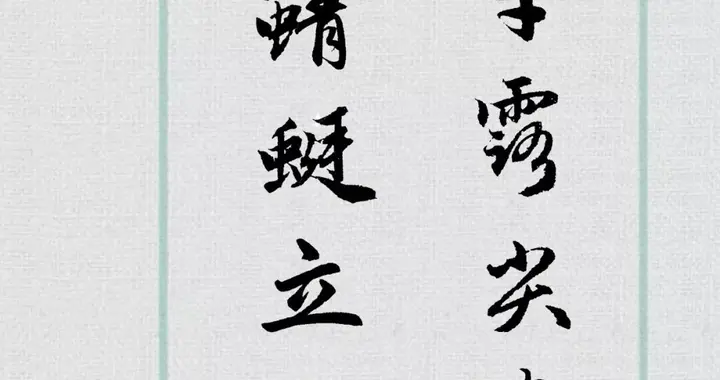 露尖
蜻蜓立